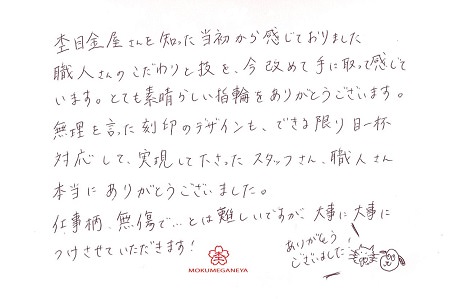 杢目金屋さんを知った当初から感じておりました
職人さんのこだわりと技を、今改めて手に取って感じて
います。とても素晴らしい指輪をありがとうございます。
無理を言った刻印のデザインも、できる限り目一杯
対応して、実現して下さったスタッフさん、職人さん
本当にありがとうございました。
仕事柄、無傷で…とは難しいですが、大事に大事に
つけさせていただきます!
ありがとう
ございました!
MOKUMEGANEYA